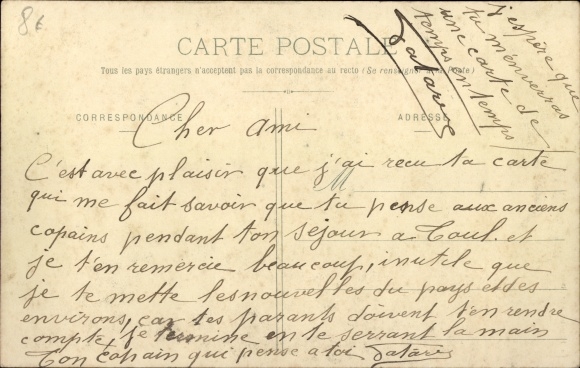 8€
CARTE POSTALE
Tous les pays étrangers n'acceptent pas la correspondance au recto (Se renseigner à la Poste)
CORRESPONDANCE
ADRESSE
j'espère que
tu m'enverras
une carte de
temps en temps
Datare
Cher Ami
C'est avec plaisir que j'ai recu ta carte
qui me fait savoir que tu pense aux anciens
copains pendant ton séjour a Toul. et
je t'en remercie beaucoup, inutile que
je te mette les nouvelles du pays et des
environs, car tes parants doivent t'en rendre
compte, je termine en te serrant la main
Ton Copain qui pense a toi Datare